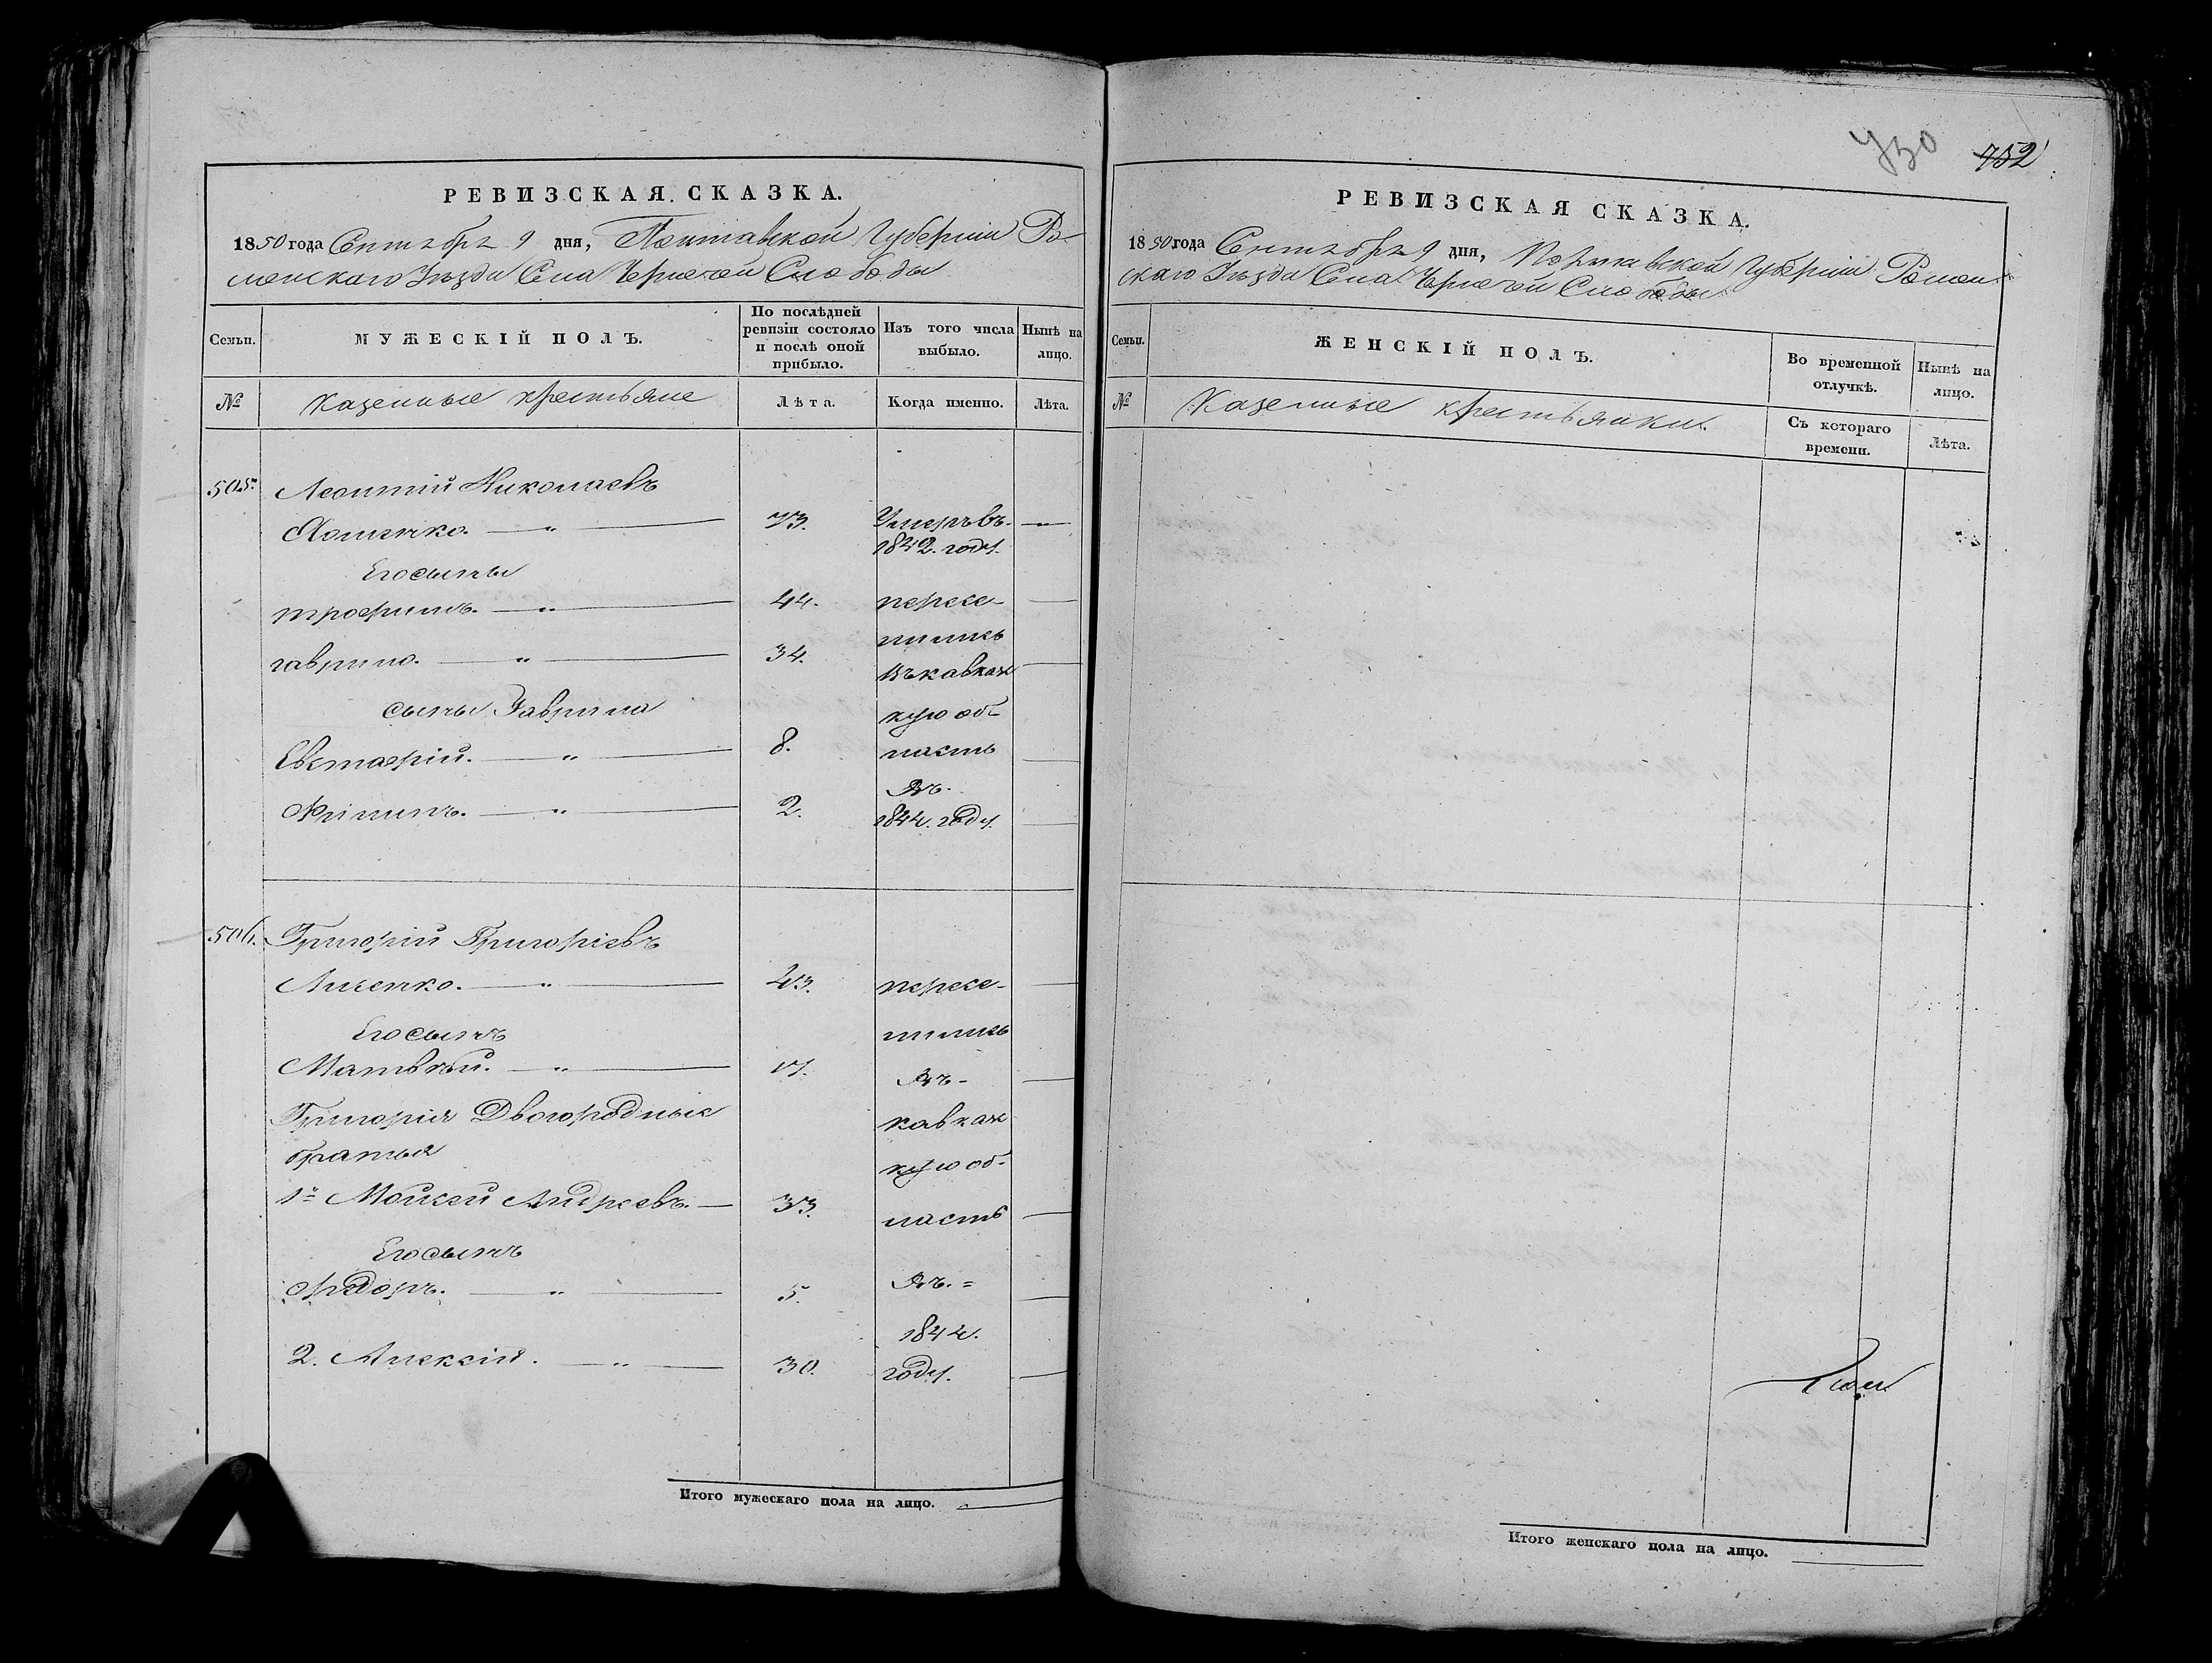 730 752
РЕВИЗСКАЯ СКАЗКА.
1850 года Сентября 9 дня, Полтавской Губернiи Ро-
менскаго Уѣзда Села Чернечей Слободы
Семьи. МУЖЕСКІЙ ПОЛЪ. По послѣдней ревизіи состояло и послѣ оной прибыло. Изъ того числа выбыло. Нынѣ на лицо.
№ Казенные крестьяне Лѣта. Когда именно. Лѣта.
505. Леонтiй Николаевъ
73. Умеръ въ
1842. году.
Его сыны
трофимъ. 44. пересе-
лились
гаврило. 34.
въ кавказ
сыны Гаврила
кую об-
Евстафiй. 8. ласть
Въ.
Филипъ. 2. 1844. году.
506. Григорiй Григорiевъ
43. пересе-
Его сынъ
лились
Матвѣй. 17. Въ-
Григорiя Двоюродные
кавказ
братья
кую об-
1й Мойсей Андреевъ. 33. ласть
Его сынъ
5. Въ.=
1844.
2. Алексiй. 30. году.
Итого мужескаго пола на лицо.
РЕВИЗСКАЯ СКАЗКА.
1850 года Сентября 9 дня, Полтавской Губернiи Ромен-
скаго Уѣзда Села Чернечей Слободы
Семьи. ЖЕНСКІЙ ПОЛЪ. Во временной отлучкѣ. Нынѣ на лицо.
№ Казенные крестьянки. Съ котораго времени. Лѣта.
Итого женскаго пола на лицо.